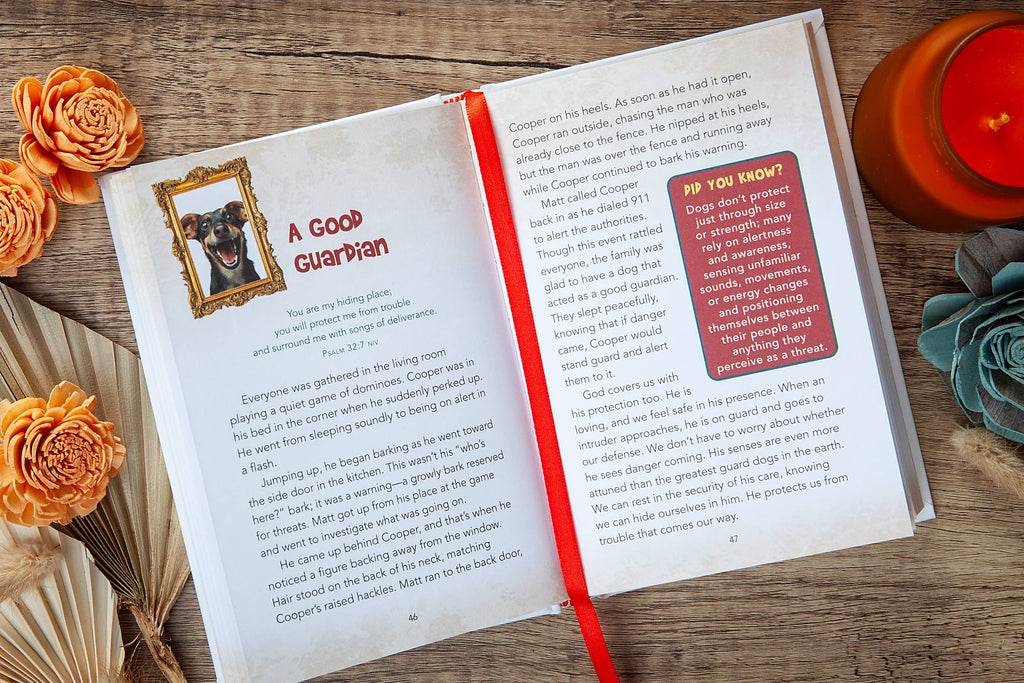 A GOOD
GUARDIAN
You are my hiding place;
you will protect me from trouble
and surround me with songs of deliverance.
PSALM 32:7 NIV
Everyone was gathered in the living room
playing a quiet game of dominoes. Cooper was in
his bed in the corner when he suddenly perked up.
He went from sleeping soundly to being on alert in
a flash.
Jumping up, he began barking as he went toward
the side door in the kitchen. This wasn't his "who's
here?" bark; it was a warning—a growly bark reserved
for threats. Matt got up from his place at the game
and went to investigate what was going on.
He came up behind Cooper, and that's when he
noticed a figure backing away from the window.
Hair stood on the back of his neck, matching
Cooper's raised hackles. Matt ran to the back door,
46
Cooper on his heels. As soon as he had it open,
Cooper ran outside, chasing the man who was
already close to the fence. He nipped at his heels,
but the man was over the fence and running away
while Cooper continued to bark his warning.
Matt called Cooper
back in as he dialed 911
to alert the authorities.
Though this event rattled
everyone, the family was
glad to have a dog that
acted as a good guardian.
They slept peacefully,
knowing that if danger
came, Cooper would
stand guard and alert
them to it.
God covers us with
his protection too. He is
loving, and we feel safe in his presence. When an
intruder approaches, he is on guard and goes to
our defense. We don't have to worry about whether
he sees danger coming. His senses are even more
attuned than the greatest guard dogs in the earth.
We can rest in the security of his care, knowing
we can hide ourselves in him. He protects us from
trouble that comes our way.
47
DID YOU KNOW?
Dogs don't protect
just through size
or strength; many
rely on alertness
and awareness,
sensing unfamiliar
sounds, movements,
or energy changes
and positioning
themselves between
their people and
anything they
perceive as a threat.